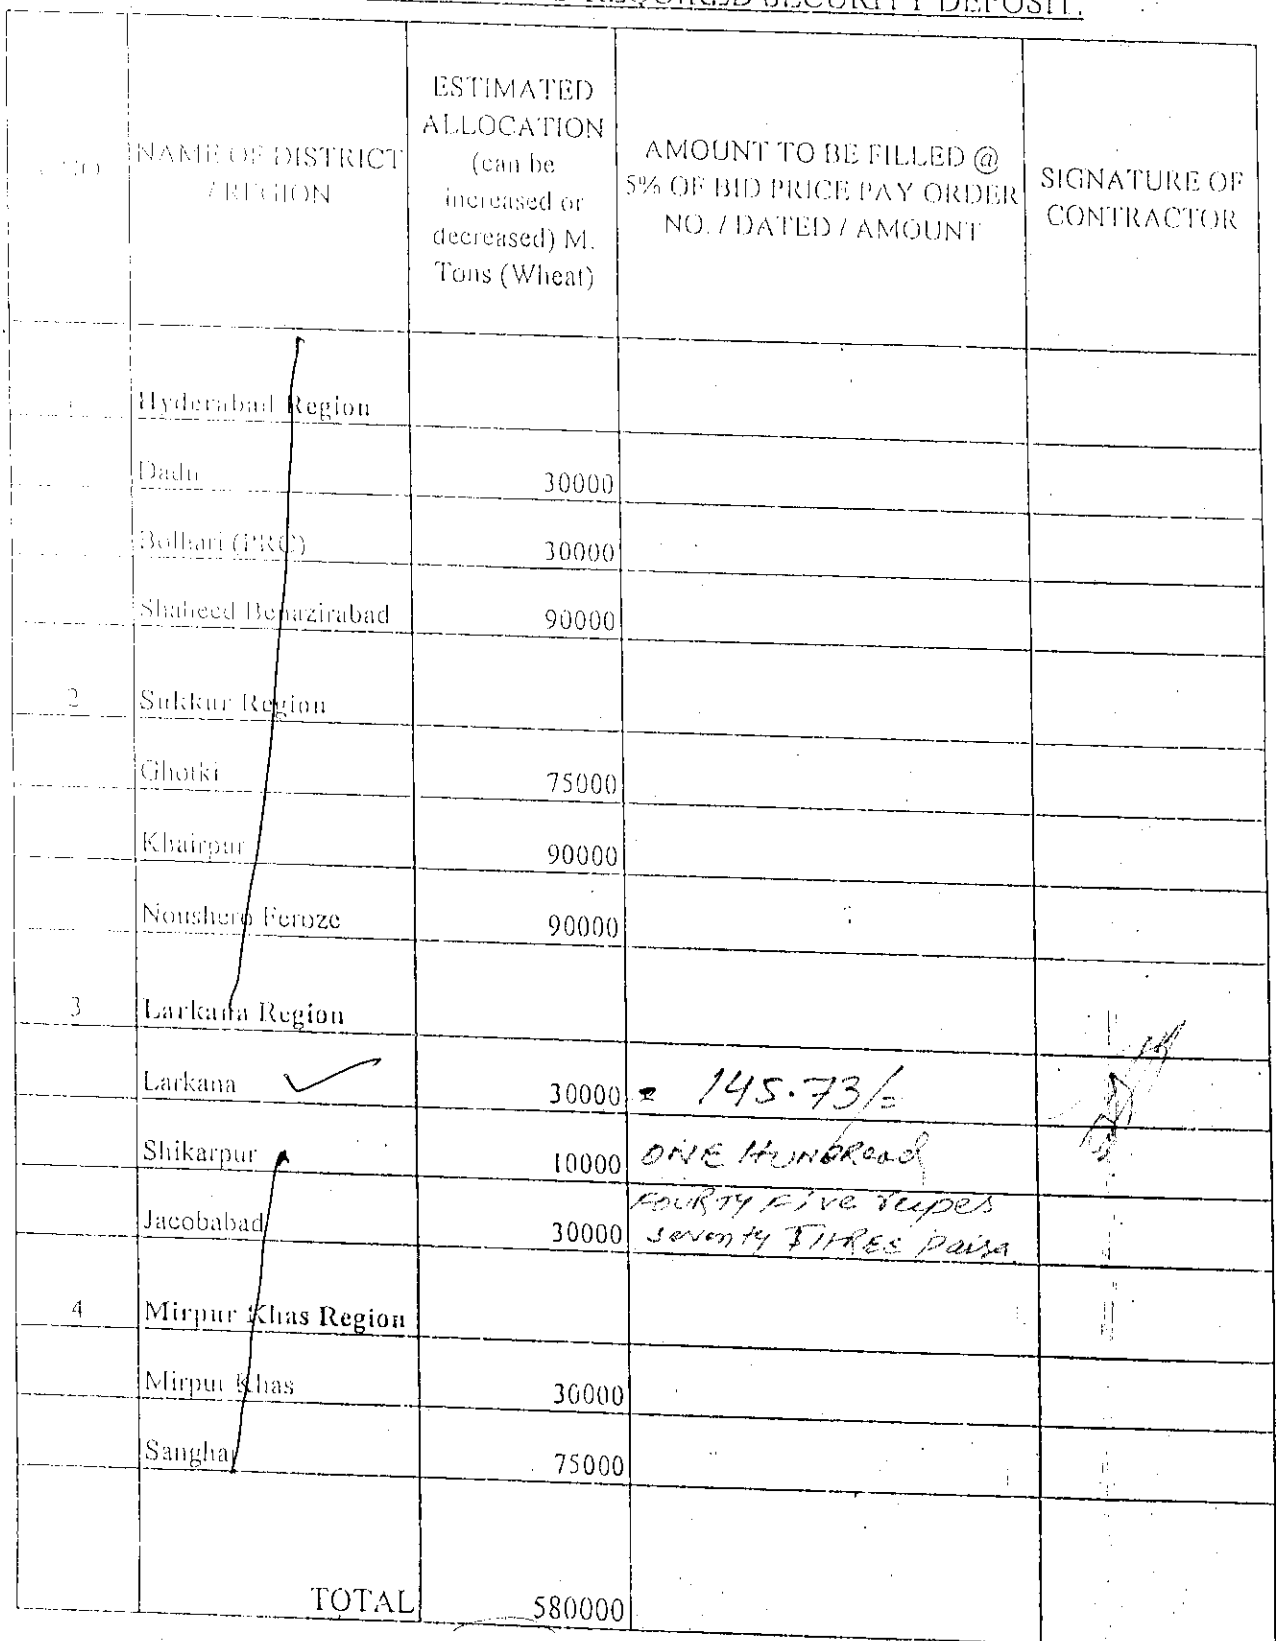 REQUIRED SECURITY DEPOSIT.
NO
NAME OF DISTRICT
/ REGION
ESTIMATED
ALLOCATION
(can be
increased or
decreased) M.
Tons (Wheat)
AMOUNT TO BE FILLED @
5% OF BID PRICE PAY ORDER
NO. / DATED / AMOUNT
SIGNATURE OF
CONTRACTOR
Hyderabad Region
Dadu 30000
Bolhari (PRC) 30000
Shaheed Benazirabad 90000
2 Sukkur Region
Ghotki 75000
Khairpur 90000
Noushero Feroze 90000
3 Larkana Region
Larkana 30000 145.73/=
Shikarpur 10000 ONE HUNDREad
FOURTY FIVE rupes
Jacobabad 30000 seventy THREE paisa
4 Mirpur Khas Region
Mirpur Khas 30000
Sanghar 75000
TOTAL 580000